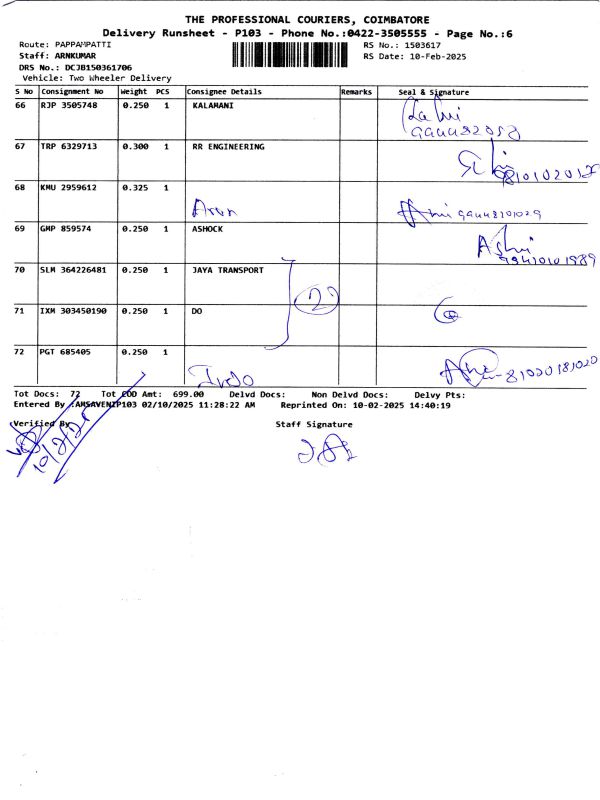 THE PROFESSIONAL COURIERS, COIMBATORE
Delivery Runsheet - P103 - Phone No.:0422-3505555 - Page No.:6
Route: PAPPAMPATTI RS No.: 1503617
Staff: ARNKUMAR RS Date: 10-Feb-2025
DRS No.: DCJB150361706
Vehicle: Two Wheeler Delivery
S No Consignment No Weight PCS Consignee Details Remarks Seal & Signature
66 RJP 3505748 0.250 1 KALAMANI
67 TRP 6329713 0.300 1 RR ENGINEERING
68 KMU 2959612 0.325 1
Arun
69 GMP 859574 0.250 1 ASHOCK
70 SLM 364226481 0.250 1 JAYA TRANSPORT
71 IXM 303450190 0.250 1 DO
72 PGT 685405 0.250 1
Tot Docs: 72 Tot COD Amt: 699.00 Delvd Docs: Non Delvd Docs: Delvy Pts:
Entered By :AMSAVENIP103 02/10/2025 11:28:22 AM Reprinted On: 10-02-2025 14:40:19
Verified By Staff Signature
10/2/25